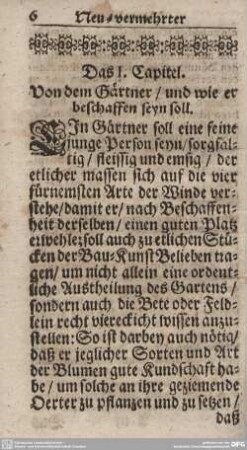 6 Neu-vermehrter
Das I. Capitel.
Von dem Gärtner / und wie er
beschaffen seyn soll.
EIn Gärtner soll eine feine
junge Person seyn / sorgfäl-
tig / fleissig und emsig / der
etlicher massen sich auf die vier
fürnemsten Arte der Winde ver-
stehe / damit er / nach Beschaffen-
heit derselben / einen guten Platz
erwehle; soll auch zu etlichen Stü-
cken der Bau-Kunst Belieben tra-
gen / um nicht allein eine ordent-
liche Austheilung des Gartens /
sondern auch die Bete oder Feld-
lein recht viereckicht wissen anzu-
stellen: So ist darbey auch nötig /
daß er jeglicher Sorten und Art
der Blumen gute Kundschaft ha-
be / um solche an ihre geziemende
Oerter zu pflanzen und zu setzen /
daß